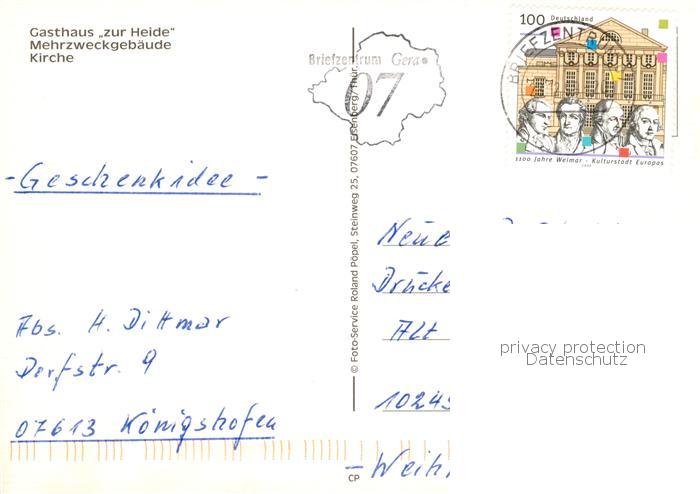 Gasthaus „zur Heide"
Mehrzweckgebäude
Kirche
Briefzentrum Gera
07
100 Deutschland
BRIEFZENTRUM
1100 Jahre Weimar - Kulturstadt Europas
1999
- Geschenkidee -
Abs. H. Dittmar
Dorfstr. 9
07613 Königshofen
© Foto-Service Roland Popel, Steinweg 25, 07607 Eisenberg/Thür.
Neue
Drucke
Alt
1024
- Weih
privacy protection
Datenschutz
CP